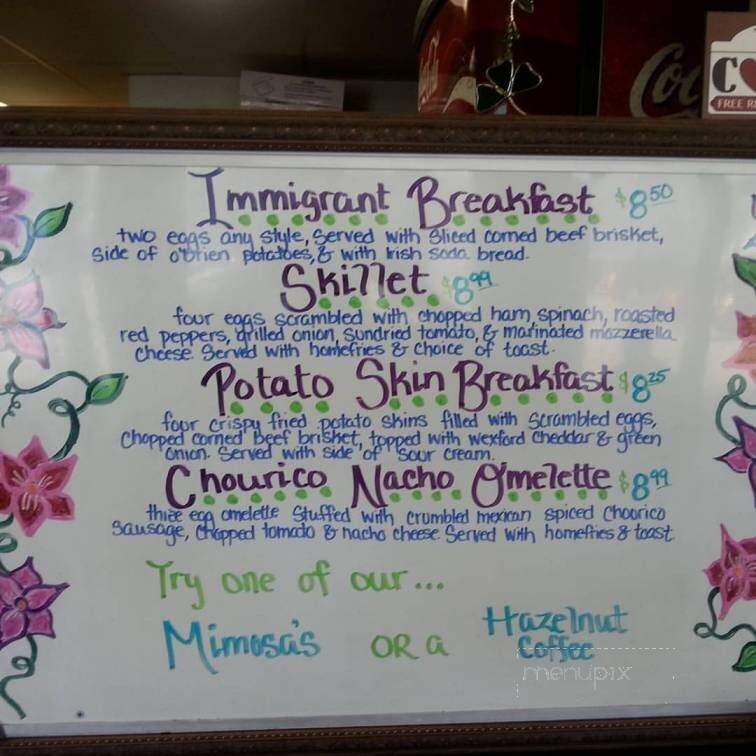 Coc
C
FREE RE
Immigrant Breakfast $8.50
two eggs any style, Served with Sliced corned beef brisket,
Side of o'brien potatoes, & with Irish Soda bread.
Skillet $8.99
four eggs scrambled with chopped ham, spinach, roasted
red peppers, grilled onion, sundried tomato, & marinated mozzerella
cheese. Served with homefries & choice of toast.
Potato Skin Breakfast $8.25
four crispy fried potato skins filled with Scrambled eggs,
Chopped corned beef brisket, topped with Wexford Cheddar & green
Onion. Served with side of Sour Cream.
Chourico Nacho O'melette $8.99
three egg omelette Stuffed with crumbled mexican spiced Choorico
Sausage, Chopped tomato & nacho cheese. Served with homefries & toast.
Try one of our...
Mimosa's OR a Hazelnut
Coffee
menupix